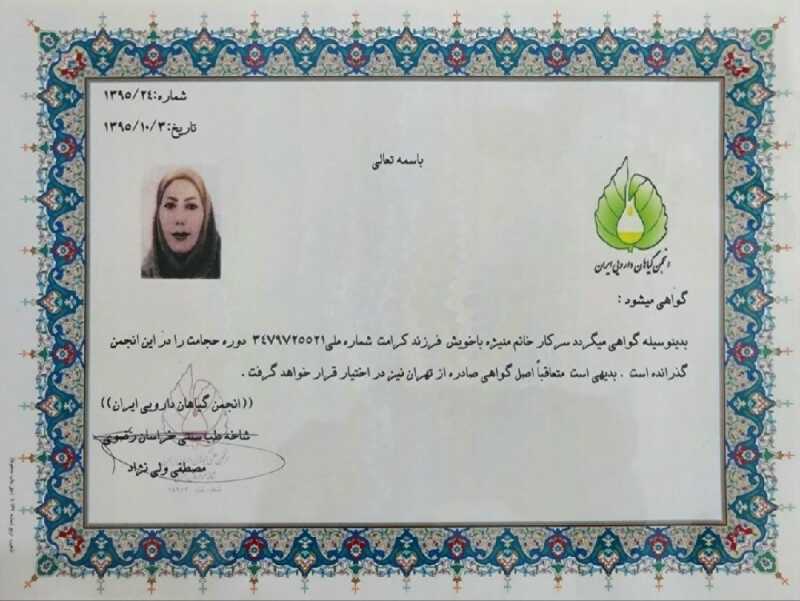 شماره: ۱۳۹۵/۲۴
تاریخ: ۱۳۹۵/۱۰/۳
باسمه تعالی
انجمن گیاهان دارویی ایران
گواهی میشود :
بدینوسیله گواهی میگردد سرکار خانم منیژه باخویش فرزند کرامت شماره ملی ۳۴۷۹۷۲۵۵۲۱ دوره حجامت را در این انجمن
گذرانده است . بدیهی است متعاقباً اصل گواهی صادره از تهران نیز در اختیار قرار خواهد گرفت .
((انجمن گیاهان دارویی ایران))
شاخه طب سنتی خراسان رضوی
مصطفی ولی نژاد